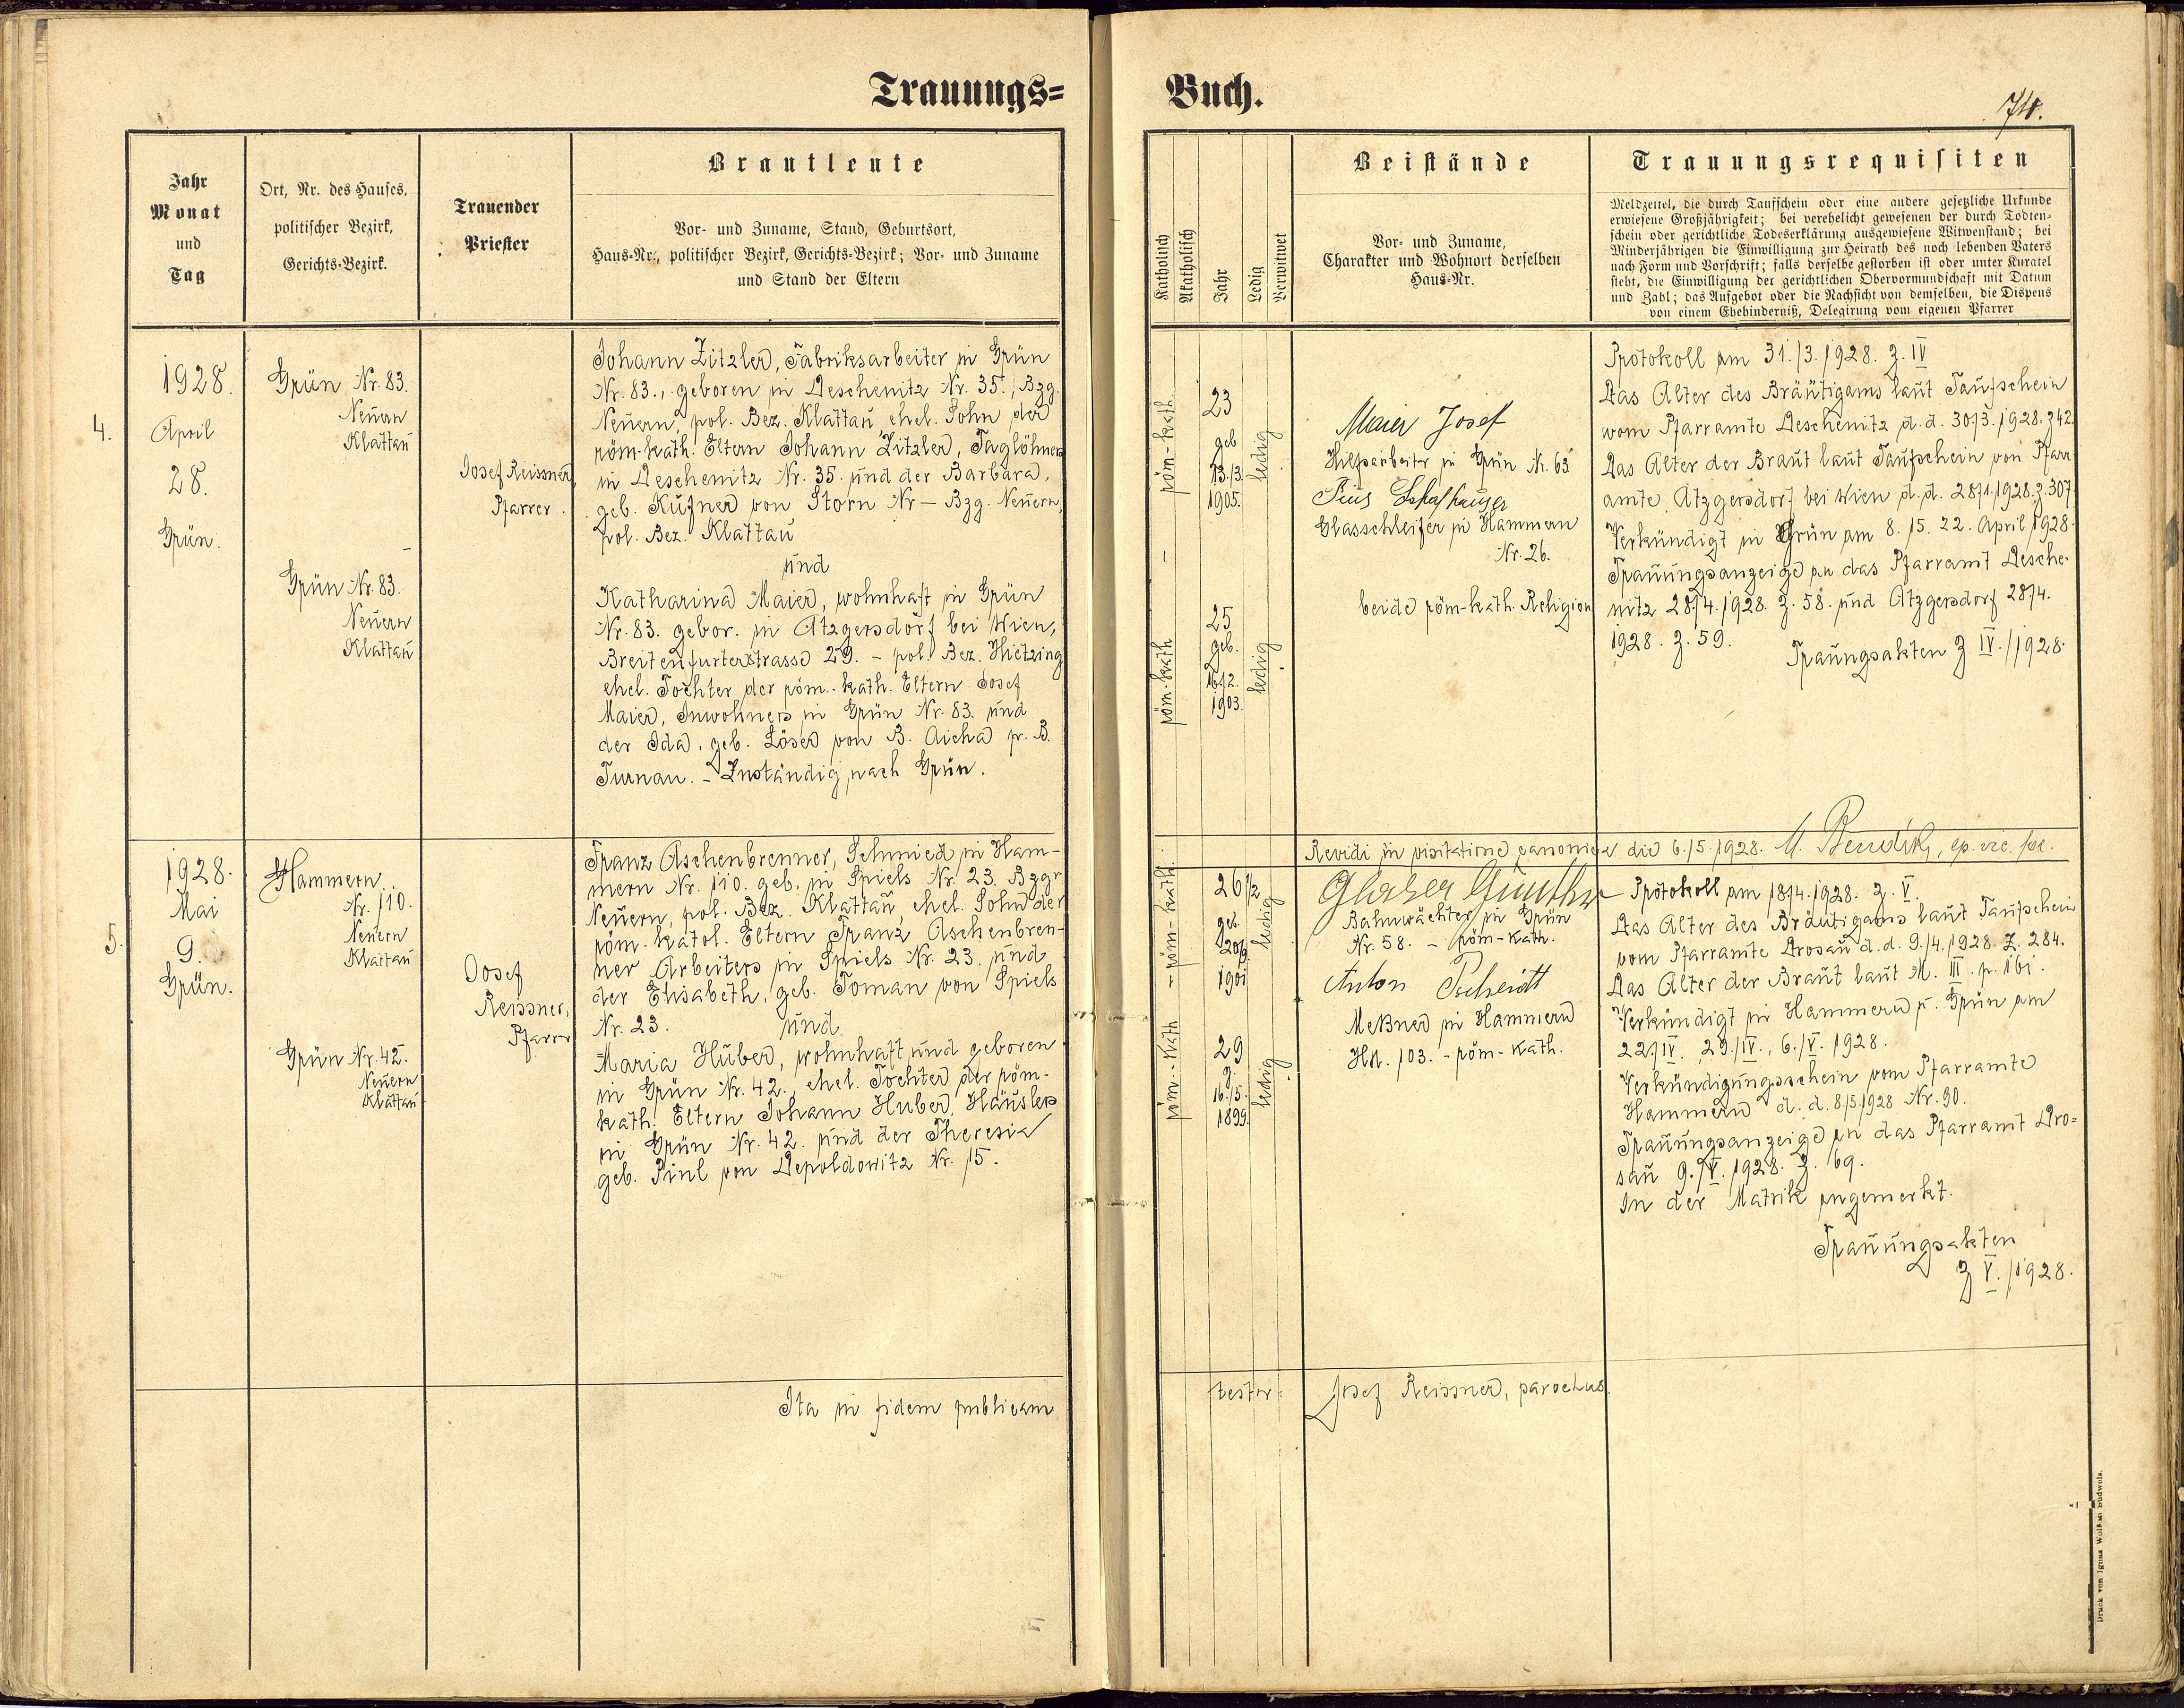 Trauungs=
Jahr
Monat
und
Tag
Ort, Nr. des Hauses,
politischer Bezirk,
Gerichts-Bezirk.
Trauender
Priester
Brautleute
Vor- und Zuname, Stand, Geburtsort,
Haus-Nr., politischer Bezirk, Gerichts-Bezirk; Vor- und Zuname
und Stand der Eltern
4.
1928.
April
28.
Grün.
Grün Nr. 83.
Neuern
Klattau
Grün Nr. 83.
Neuern
Klattau
Josef Reissner,
Pfarrer.
Johann Zitzler, Fabriksarbeiter in Grün
Nr. 83., geboren in Deschenitz Nr. 35., Bzg.
Neuern, pol. Bez. Klattau, ehel. Sohn der
röm.-kath. Eltern Johann Zitzler, Taglöhners
in Deschenitz Nr. 35. und der Barbara,
geb. Kufner von Storn Nr — Bzg. Neuern,
pol. Bez. Klattau
und
Katharina Maier, wohnhaft in Grün
Nr. 83. gebor. in Atzgersdorf bei Wien,
Breitenfurterstrasse 29. - pol. Bez. Hietzing
ehel. Tochter der röm.-kath. Eltern Josef
Maier, Inwohners in Grün Nr. 83. und
der Ida, geb. Löser von B. Aicha p. B.
Turnau. - Zuständig nach Grün.
5.
1928.
Mai
9.
Grün.
Hammern
Nr. 110.
Neuern
Klattau
Grün Nr. 42.
Neuern
Klattau
Josef
Reissner,
Pfarrer
Franz Aschenbrenner, Schmied in Ham-
mern Nr. 110. geb. in Spiels Nr. 23. Bzg.
Neuern, pol. Bez. Klattau, ehel. Sohn der
röm. katol. Eltern Franz Aschenbren-
ner Arbeiters in Spiels Nr. 23. und
der Elisabeth, geb. Toman von Spiels
Nr. 23. und
Maria Huber, wohnhaft und geboren
in Grün Nr. 42., ehel. Tochter der röm.-
kath. Eltern Johann Huber, Häuslers
in Grün Nr. 42. und der Theresia
geb. Pinl von Depoldowitz Nr. 15.
Ita in fidem publicam
Buch.
74.
Katholisch
Akatholisch
Jahr
Ledig
Verwitwet
Beistände
Vor- und Zuname,
Charakter und Wohnort derselben
Haus-Nr.
Trauungsrequisiten
Meldzettel, die durch Taufschein oder eine andere gesetzliche Urkunde
erwiesene Großjährigkeit; bei verehelicht gewesenen der durch Todten-
schein oder gerichtliche Todeserklärung ausgewiesene Witwenstand; bei
Minderjährigen die Einwilligung zur Heirath des noch lebenden Vaters
nach Form und Vorschrift; falls derselbe gestorben ist oder unter Kuratel
steht, die Einwilligung der gerichtlichen Obervormundschaft mit Datum
und Zahl; das Aufgebot oder die Nachsicht von demselben, die Dispens
von einem Ehebinderniß, Delegirung vom eigenen Pfarrer
röm.-kath.
23
geb
13./3.
1905.
ledig
röm.-kath
25
geb.
16./2.
1903.
ledig
Maier Josef
Hilfsarbeiter in Grün Nr. 63
Pius
Glasschleifer in Hammern
Nr. 26.
beide röm-kath. Religion
Protokoll am 31./3. 1928. Z. IV
Das Alter des Bräutigams laut Taufschein
vom Pfarramte Deschenitz d. d. 30./3. 1928. Z 42.
Das Alter der Braut laut Taufschein von Pfarr-
amte Atzgersdorf bei Wien d. d. 28./1. 1928. Z. 307.
Verkündigt in Grün am 8. 15. 22. April 1928.
Trauungsanzeige an das Pfarramt Desche-
nitz 28./4. 1928. Z. 58. und Atzgersdorf 28./4.
1928. Z. 59.
Trauungsakten Z IV./1928.
Revidi in visitatione canonica die 6./5. 1928.
röm-kath.
26 1/2
geb.
20/9.
1901
ledig
röm.-kath
29
g.
16./5.
1899.
ledig
Glaser Günther
Bahnwächter in Grün
Nr. 58. - röm-kath.
Anton
Meßner in Hammern
HN. 103. - röm-kath.
Protokoll am 18./4. 1928. Z. V.
Das Alter des Bräutigams laut Taufschein
vom Pfarramte Drosau d. d. 9./4. 1928. Z. 284.
Das Alter der Braut laut M. III. p. 161.
Verkündigt in Hammern u. Grün am
22./IV. 29./IV., 6./V. 1928.
Verkündigungsschein vom Pfarramte
Hammern d. d. 8./5. 1928 Nr. 90.
Trauungsanzeige an das Pfarramt Dro=
sau 9./V. 1928. Z. 69.
In der Matrik angemerkt.
Trauungsakten
Z V./1928.
testor:
Josef Reissner, parochus.